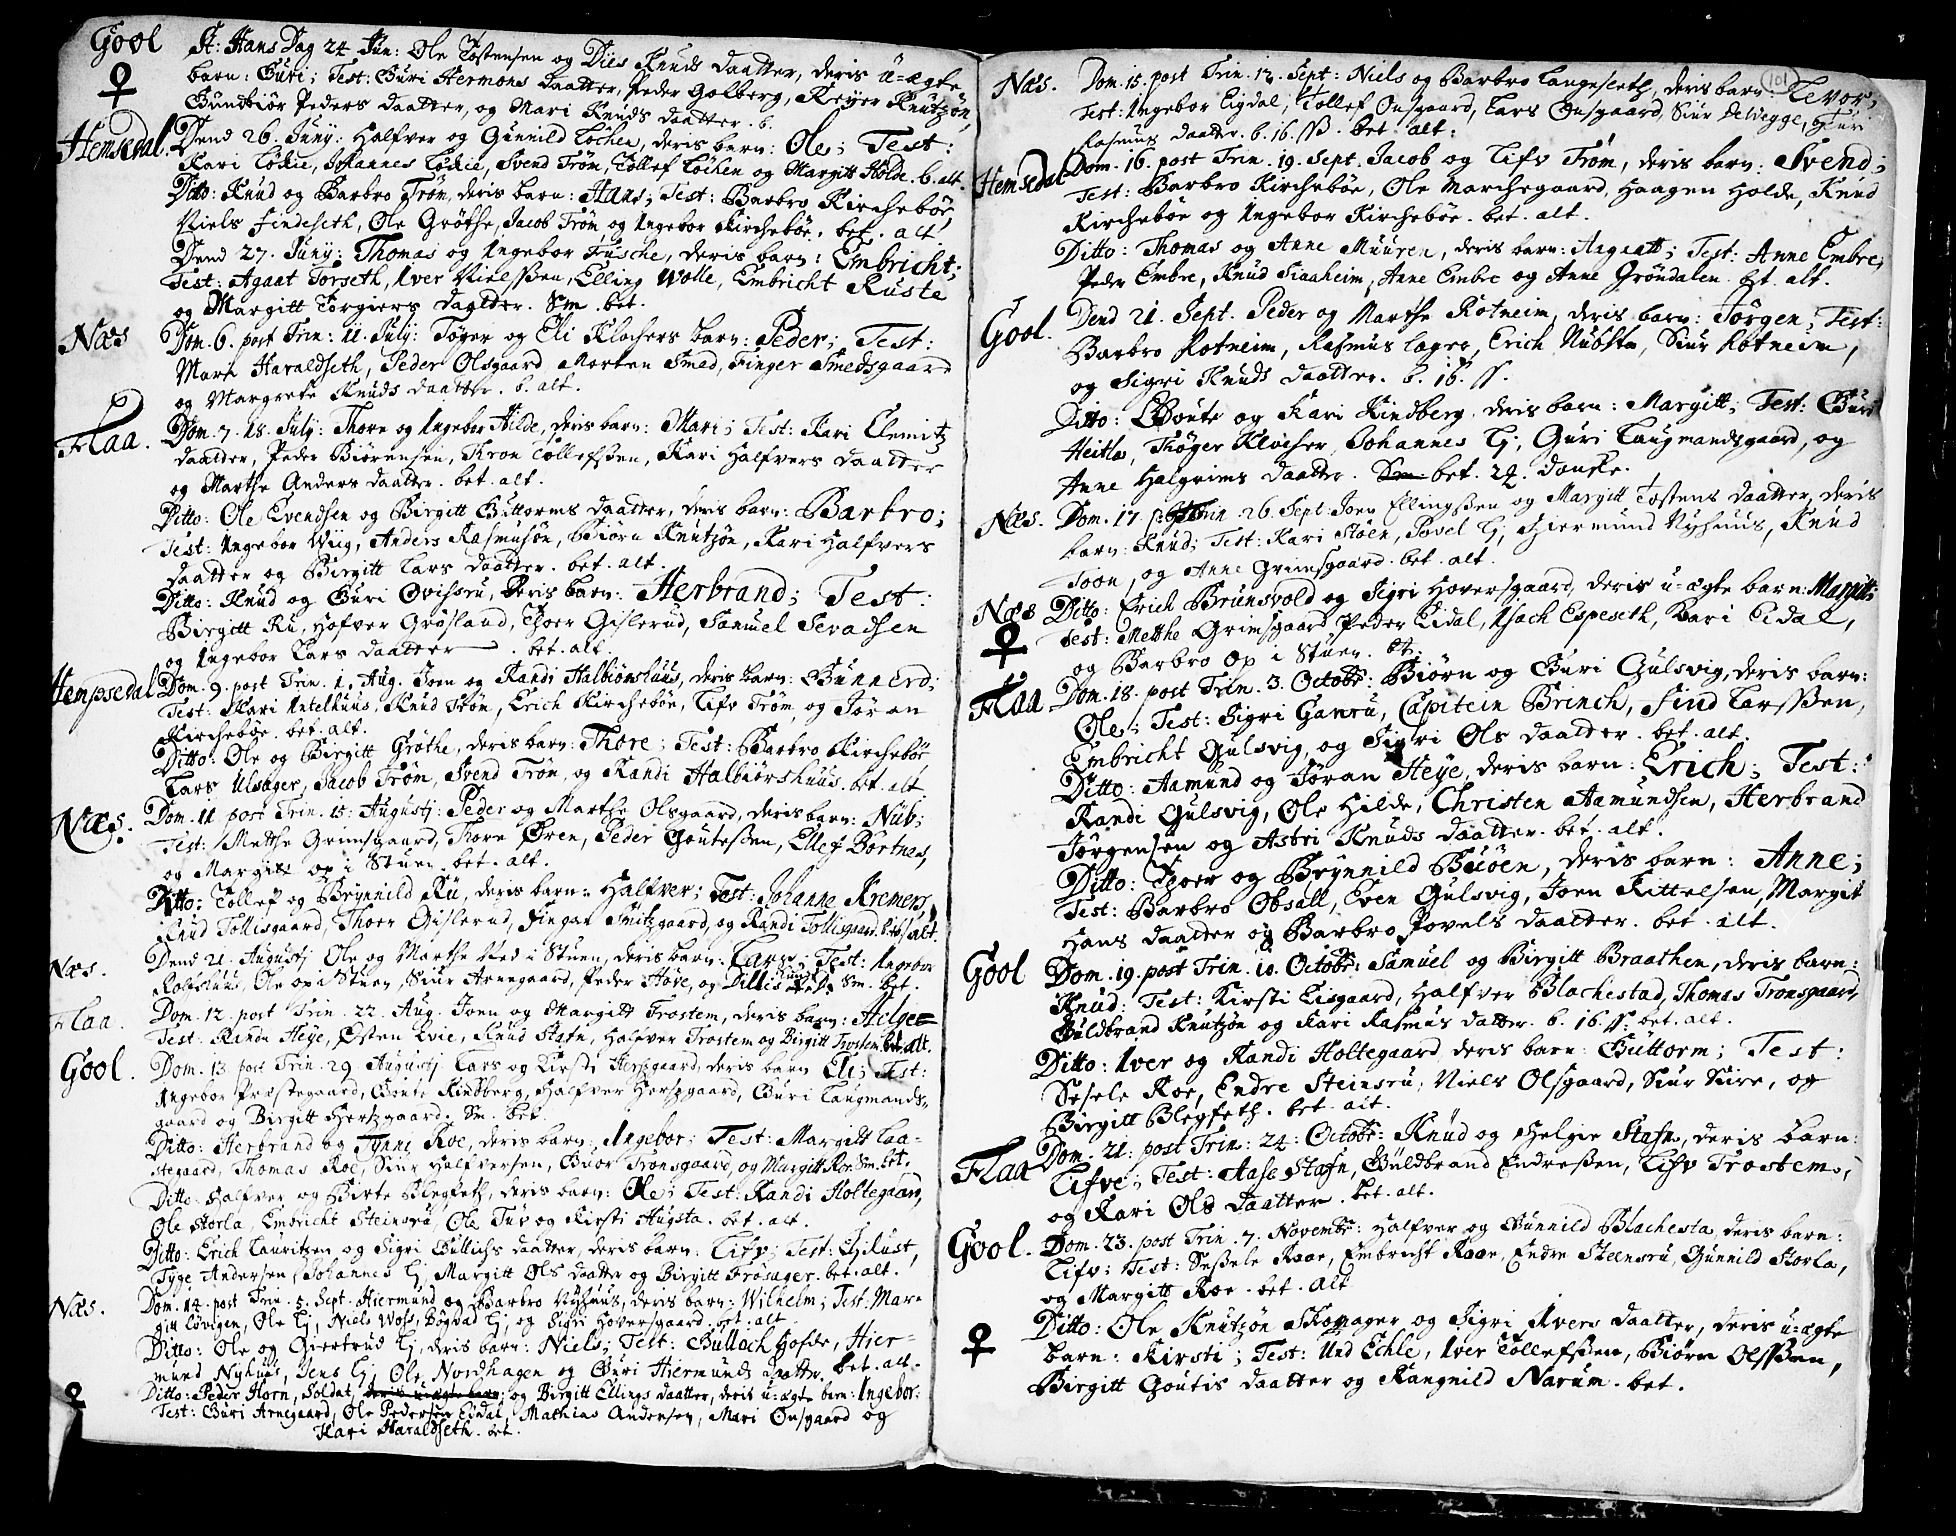 Gool St: Hans Dag 24 Jun: Ole Tostensen og Diis Knuds daatter, deris u=ægte
barn: Guri; Test: Guri Hermons daatter, Peder Golberg, Reyer Knutzøn,
Gundbiør Peders daatter, og Mari Knuds daatter. b.
Hemsedal. Dend 26. Junij: Halfver og Gunnild Løchen, deris barn: Ole; Test:
Kari Løkie, Johannes Løkie, Svend Trøm, Tollef Løchen og Margitt Holde. b. alt.
Ditto: Knud og Barbro Trøm, deris barn: Hans; Test: Barbro Kirchebøe,
Niels Findeseth, Ole Grøthe, Jacob Trøm og Ingebor Kirchebøe. bet. alt
Dend 27. Junij: Thomas og Ingebor Fusche, deris barn: Embricht;
Test: Agaat Torseth, Iver Nielssen, Elling Wolle, Embricht Ruste
og Margitt Torgiers daatter. Sm. bet.
Næs Dom. 6. post Trin: 11. Julij: Tøger og Eli Klochers barn: Peder; Test:
Mari Haraldseth, Peder Olsgaard, Morten Smed, Finger Smedsgaard
og Margrete Knuds daatter. b. alt.
Flaa. Dom. 7. 18. Julij: Thore og Ingebor Hilde, deris barn: Mari; Test: Kari Clemitz
daatter, Peder Biørensen, Thron Tollefssen, Kari Halfvers daatter
og Marthe Anders daatter. bet. alt.
Ditto: Ole Evendsen og Birgitt Guttorms daatter, deris barn: Barbro;
Test: Ingebor Wiig, Anders Rasmusøn, Biørn Knutzøn, Kari Halfvers
daatter og Birgitt Lars daatter. bet. alt.
Ditto: Knud og Guri Ovissru, deris barn: Herbrand; Test:
Birgitt Ru, Hofver Grøsland, Thoer Gislerud, Samuel Sevadsen
og Ingebor Lars daatter. bet. alt.
Hempsedal Dom. 9. post Trin. 1. Aug. Joen og Randi Halbiønshuus, deris barn: Gunnerd;
Test: Kari Intelhuus, Knud Trøm, Erich Kirchebøe, Lifv Trøm, og Jøran
Kirchebøe. bet. alt.
Ditto: Ole og Birgitt Grøthe, deris barn: Thore; Test: Barbro Kirchebøe
Lars Ulsager, Jacob Trøm, Svend Trøm, og Randi Halbiørshuus. bet. alt.
Næs. Dom. 11 post Trin. 15. Augustj: Peder og Marthe Olsgaard, deris barn: Nub;
Test: Metthe Grimsgaard, Thore Øren, Peder Goutessen, Ellef Bortnes,
og Margitt op i Stuen. bet. alt.
Ditto: Tollef og Brynnild Ru, deris barn: Halfver; Test: Johanne Kremers,
Knud Tollisgaard, Thoer Gislerud, Fingan Smitzgaard, og Randi Tollisgaard. bet. alt.
Næs. Dend 21. Augustj Ole og Marthe Ned i Stuen, deris barn: Lars; Test: Ingebor
Roleshuus, Ole op i Stuen, Siur Arnegaard, Peder Høve, og Sm. bet.
Flaa. Dom. 12. post Trin. 22. Aug. Joen og Margitt Trostem, deris barn: Helge
Test. Randi Heye, Østen Evie, Knud Stafn, Halfver Trostem og Birgitt Trostem bet. alt.
Gool. Dom. 13 post Trin. 29 Augustj Lars og Kirsti Hersgaard, deris barn Eli; Test:
Ingebor Præstegaard, Goute Rindberg, Halfver Hersgaard, Guri Laugmands=
gaard og Birgitt Hertzgaard. Sm. bet.
Ditto: Herbrand og Synne Roe, deris barn: Ingebor; Test: Margitt Laa=
stegaard, Thomas Roe, Siur Halfversen, Guor Tronsgaard, og Margitt Roe Sm. bet.
Ditto: Halfver og Birte Blegfeth, deris barn: Ole; Test: Randi Holtegaard,
Ole Storla, Embricht Steinsru, Ole Tuv og Kirsti Augsta. bet. alt.
Ditto: Erich Lauritzen og Sigri Gullichs daatter, deris barn: Lifv; Test:
Tyge Andersen, Johannes Lj, Margitt Ols daatter og Birgitt Frøsager. bet. alt.
Næs. Dom. 14. post Trin. 5. Sept. Hiermund og Barbro Nyhuus, deris barn: Wilhelm; Test: Mar=
gitt Løvigen, Ole Lj, Niels Wols, Bøgvad Lj, og Sigri Hoversgaard. bet. alt
Ditto: Ole og Giertrud Lj, deris barn: Niels; Test: Gulloch Hofde, Hier=
mund Nyhuus, Jens Lj, Ole Nordhagen og Guri Hiermunds daatter. bet. alt.
Ditto: Peder Horn, Soldat, og Birgitt Ellings daatter, deris u=ægte barn: Ingebor:
Test: Guri Arnegaard, Ole Pedersen Eidal, Mathias Andersen, Mari Onsgaard og
Kari Haraldseth. bet.
101
Næs. Dom. 15. post Trin. 12. Sept: Niels og Barbro Langeseth, deris barn: Levor;
Test: Ingebor Eigdal, Tollef Onsgaard, Lars Onsgaard, Siur Delvegge, Guri
Rasmus daatter. b. 16. ss. bet. alt:
Hemsedal Dom. 16. post Trin. 19. Sept. Jacob og Lifv Trøm, deris barn: Svend;
Test: Barbro Kirchebøe, Ole Marchegaard, Haagen Holde, Knud
Kirchebøe og Ingebor Kirchebøe. bet. alt.
Ditto: Thomas og Anne Muuren, deris barn: Aagaatt; Test: Anne Embre,
Peder Embre, Knud Fiaaheim, Anne Embre og Anne Grøndalen. bet. alt.
Gool. Dend 21. Sept. Peder og Marthe Rotneim, deris barn: Jørgen; Test:
Barbro Rotneim, Rasmus Lager, Erich Nubsta, Siur Rotneim,
og Sigri Knuds daatter. b. 16. ss.
Ditto: Goute og Kari Rindberg, deris barn: Margitt; Test: Guri
Heitla, Thøger Klocher, Johannes Lj, Guri Laugmandsgaard, og
Anne Halgrims daatter. Sm. bet. 24. danske.
Næs. Dom. 17. post Trin. 26. Sept. Joen Ellingssen og Margit Tostens daatter, deris
barn: Knud; Test: Kari Støen, Povel Lj, Hiermund Nyhuus, Knud
Toon, og Anne Grimsgaard. bet. alt.
Næs Ditto: Erich Brunsvold og Sigri Hoversgaard, deris u=ægte barn: Margitt;
Test: Metthe Grimsgaard, Peder Eidal, Isach Espeseth, Kari Eidal,
og Barbro Op i Stuen. bt.
Flaa Dom. 18. post Trin. 3. Octobr: Biørn og Guri Gulsvig, deris barn:
Ole; Test: Sigri Ganru, Capitein Brinch, Find Larssen,
Embricht Gulsvig, og Sigri Ols daatter. bet. alt.
Ditto: Aamund og Jøran Heye, deris barn: Erich; Test:
Randi Gulsvig, Ole Hilde, Christen Aamundsen, Herbrand
Jørgensen og Astri Knuds daatter. bet. alt.
Ditto: Thoer og Brynnild Buøen, deris barn: Anne;
Test: Barbro Obsall, Even Gulsvig, Joen Kittelsen, Margit
Hans daatter og Barbro Povels daatter. bet. alt.
Gool Dom. 19. post Trin. 10. Octobr: Samuel og Birgitt Braathen, deris barn:
Knud: Test: Kirsti Eisgaard, Halfver Blachestad, Thomas Tronsgaard,
Guldbrand Knutzøn og Kari Rasmus datter. b. 16. ss. bet. alt.
Ditto: Iver og Randi Holtegaard, deris barn: Guttorm; Test:
Sesele Roe, Endre Steinsru, Niels Olsgaard, Siur Siire, og
Birgitt Blegfeth. bet. alt.
Flaa Dom. 21. post Trin: 24: Octobr: Knud og Helgie Stafn, deris barn:
Lifve; Test: Aase Stafn, Guldbrand Endressen, Lifv Trostem,
og Kari Ols daatter. bet. alt.
Gool. Dom. 23. post Trin. 7. Novembr: Halfver og Gunnild Blachesta, deris barn:
Lifv; Test: Sessele Roae, Embricht Roae, Endre Steensru, Gunnild Storla,
og Margitt Roe. bet. alt
Ditto: Ole Knutzøn Skoyager og Sigri Ivers daatter, deris u=ægte
barn: Kirsti; Test: Und Echle, Iver Tollefssen, Biørn Olssen,
Birgitt Goutis daatter og Rangnild Narum. bet.